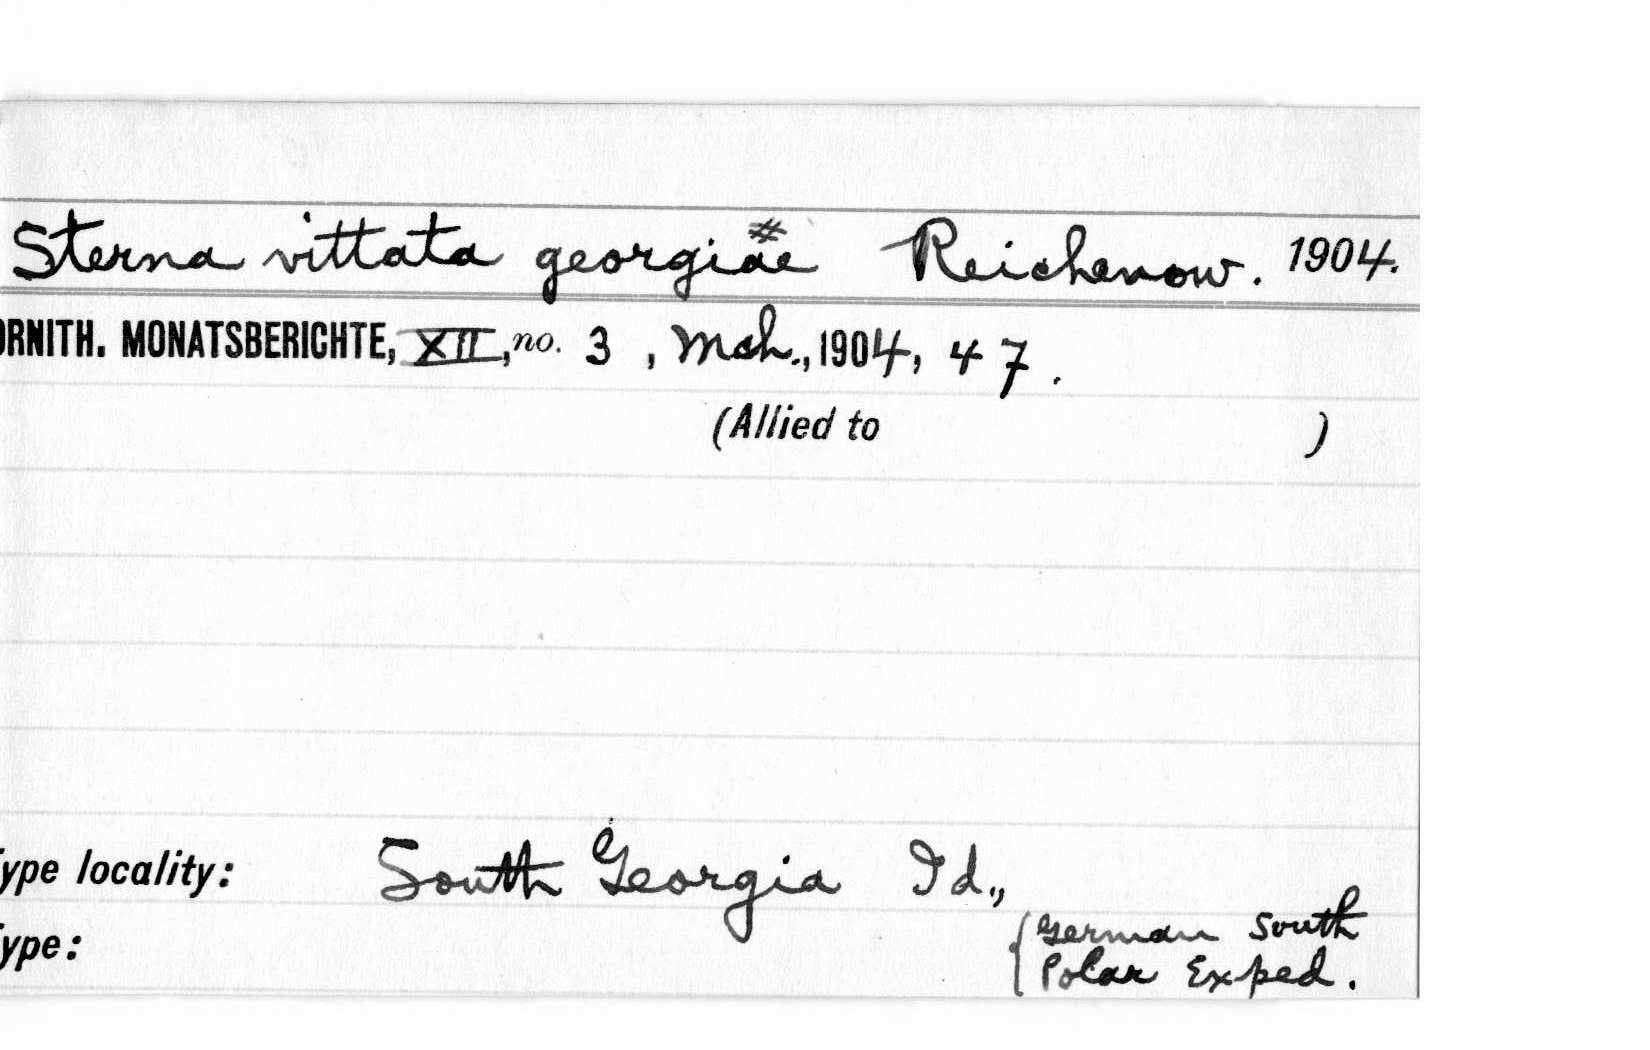 Sterna vittata georgiae # Reichenow. 1904.
ORNITH. MONATSBERICHTE, XII, no. 3, Mch., 1904, 47.
(Allied to )
Type locality: South Georgia Id.,
Type: {German South
Polar Exped.